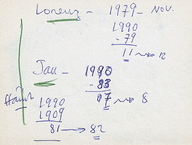 Lorenz - 1979 - NOV.
1990
- 79
11 → 12
Jan - 1990
- 83
07 → 8
1990
1909
81 → 82